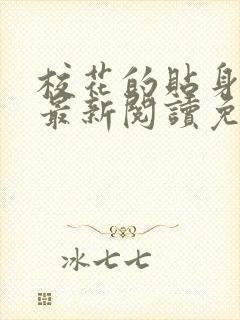 校花的貼身
最新閱讀免
冰七七